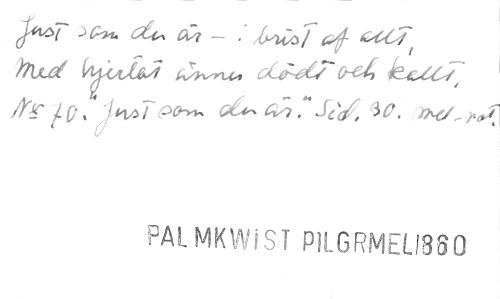 Just som du är – i brist af allt,
Med hjertat ännu dödt och kallt,
No 70. "Just som du är." Sid. 30. mel-not.
PALMKWiST PILGRMEL1860